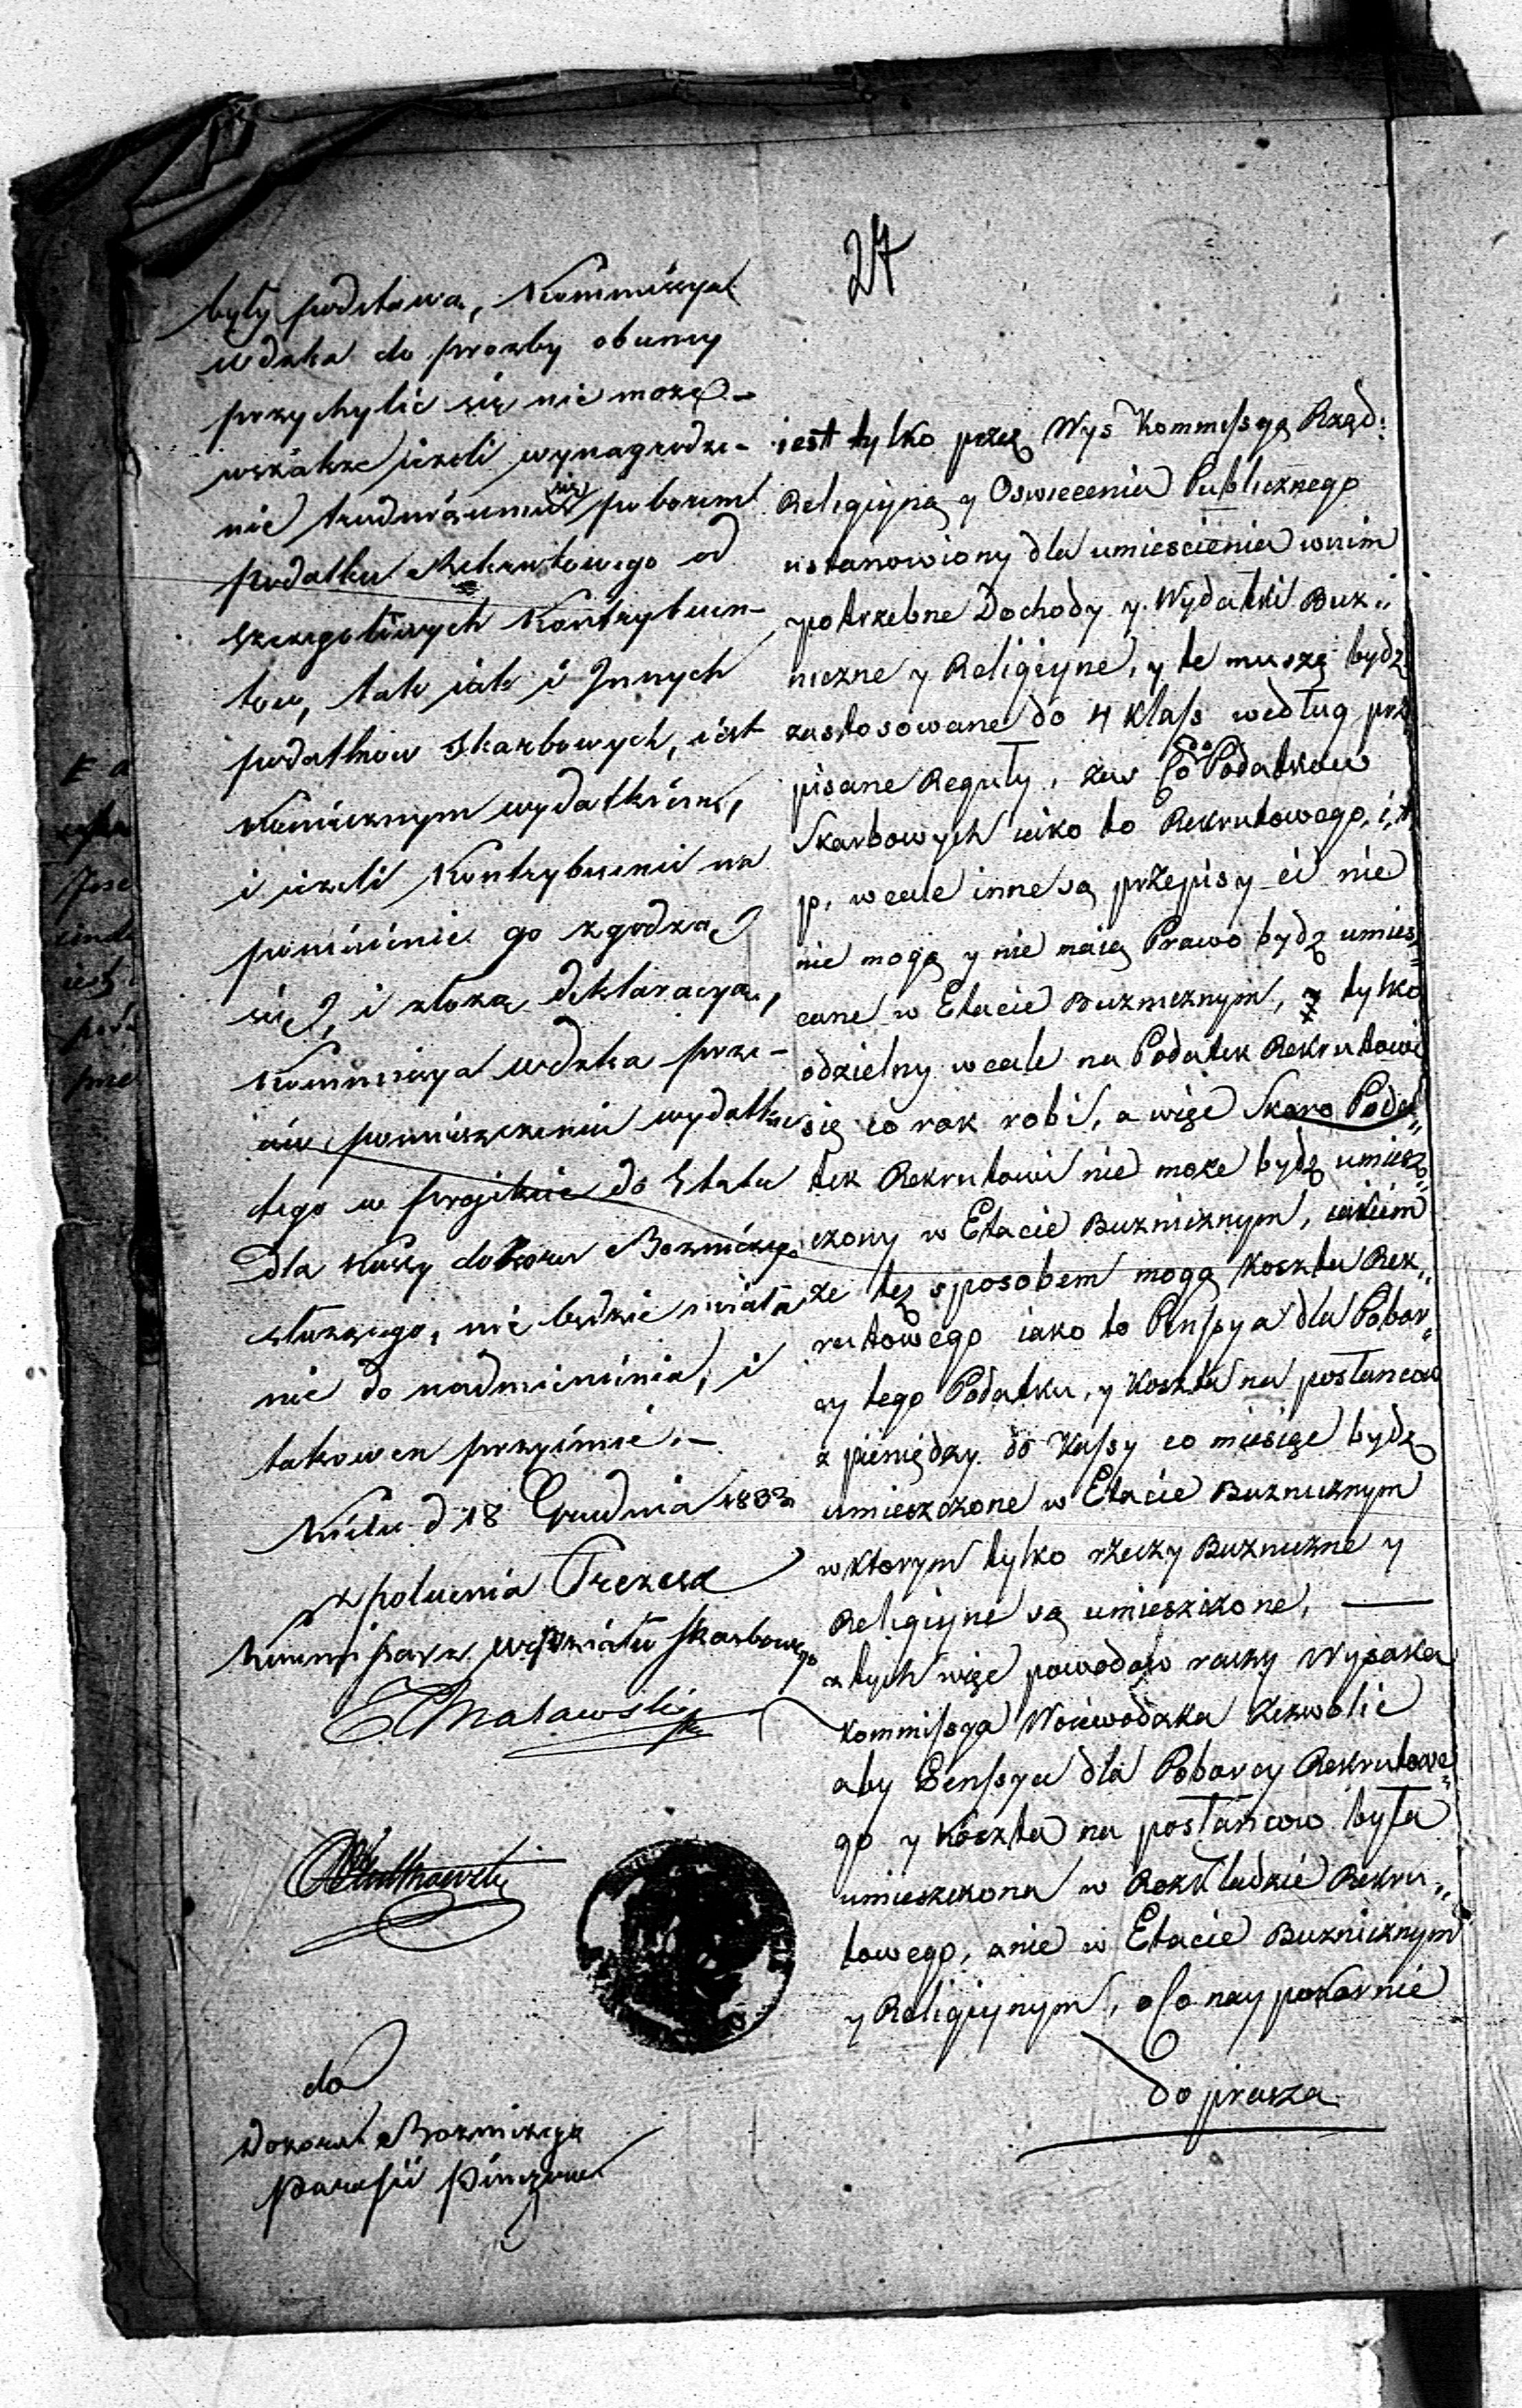 27
były podstawą, Kommissya
wdzka do prozby obecney
przychylić się nie może –
wszakże jeżeli wynagrodze-
nie trudniącemu się poborem
podatku Rekrutowego od
szczegolowych Kontrybuen-
tow, tak iak i Innych
podatkow Skarbowych, iest
koniecznym wydatkiem,
i ieżeli Kontrybuenci na
poniesienie go zgodzą
się, i złożą deklaracyą,
Kommissya wdzka prze-
ciw pomieszczeniu wydatku
tego w projekcie do Etatu
Dla Kassy dozoru Bozniczego
służącego, nic będzie miała
nic do nadmienienia, i
takowen przyimie. –
Kielce d 18 Grudnia 1833
z polecenia Prezesa
Kommissarz wydziału Skarbowego
do
Dozoru Bozniczego
Parafii Pinczow
iest tylko przez Wys Kommissyą Rząd:
Religiyną y Oswiecenia Publicznego
ustanowiony dla umiescienia wnim
potrzebne Dochody y Wydatki Buz„
niczne y Religiyne, y te muszą bydz
zastosowane do 4 Klass według prze
pisane Reguły, zas Co do Podatkow
Skarbowych iako to Rekrutowego, i, t
p, wcale inne są przepisy ei nie
nie mogą y nie maią Prawo bydz umies„
cane w Etacie Buzniznym, y tylko
odzielny wcale na Podatek Rekrutowi
się co rok robi, a więc Skoro Poda„
tek Rekrutowi nie może bydz umiesz„
czony w Etacie Buzniznym, iakiem
że też sposobem mogą Koszta Rek„
rutowego iako to Pensya dla Pobor„
cy tego Podatku, y Koszta na posłancow
z pieniędzy do Kassy co miesiąc bydz
umieszczone w Etacie Buznicznym
w ktorym tylko rzeczy Buzniczne y
Religiyne są umieszczone, —
z tych więc powodow raczy Wysoka
Kommissya Woiewodzka zezwolic
aby Pensya dla Poborcy Rekrutowe„
go y Koszta na posłancow była
umieszczona w Rozkładzie Rekru„
towego, anie w Etacie Buznicznym
y Religiynym, o co nay pokornie
do prasza